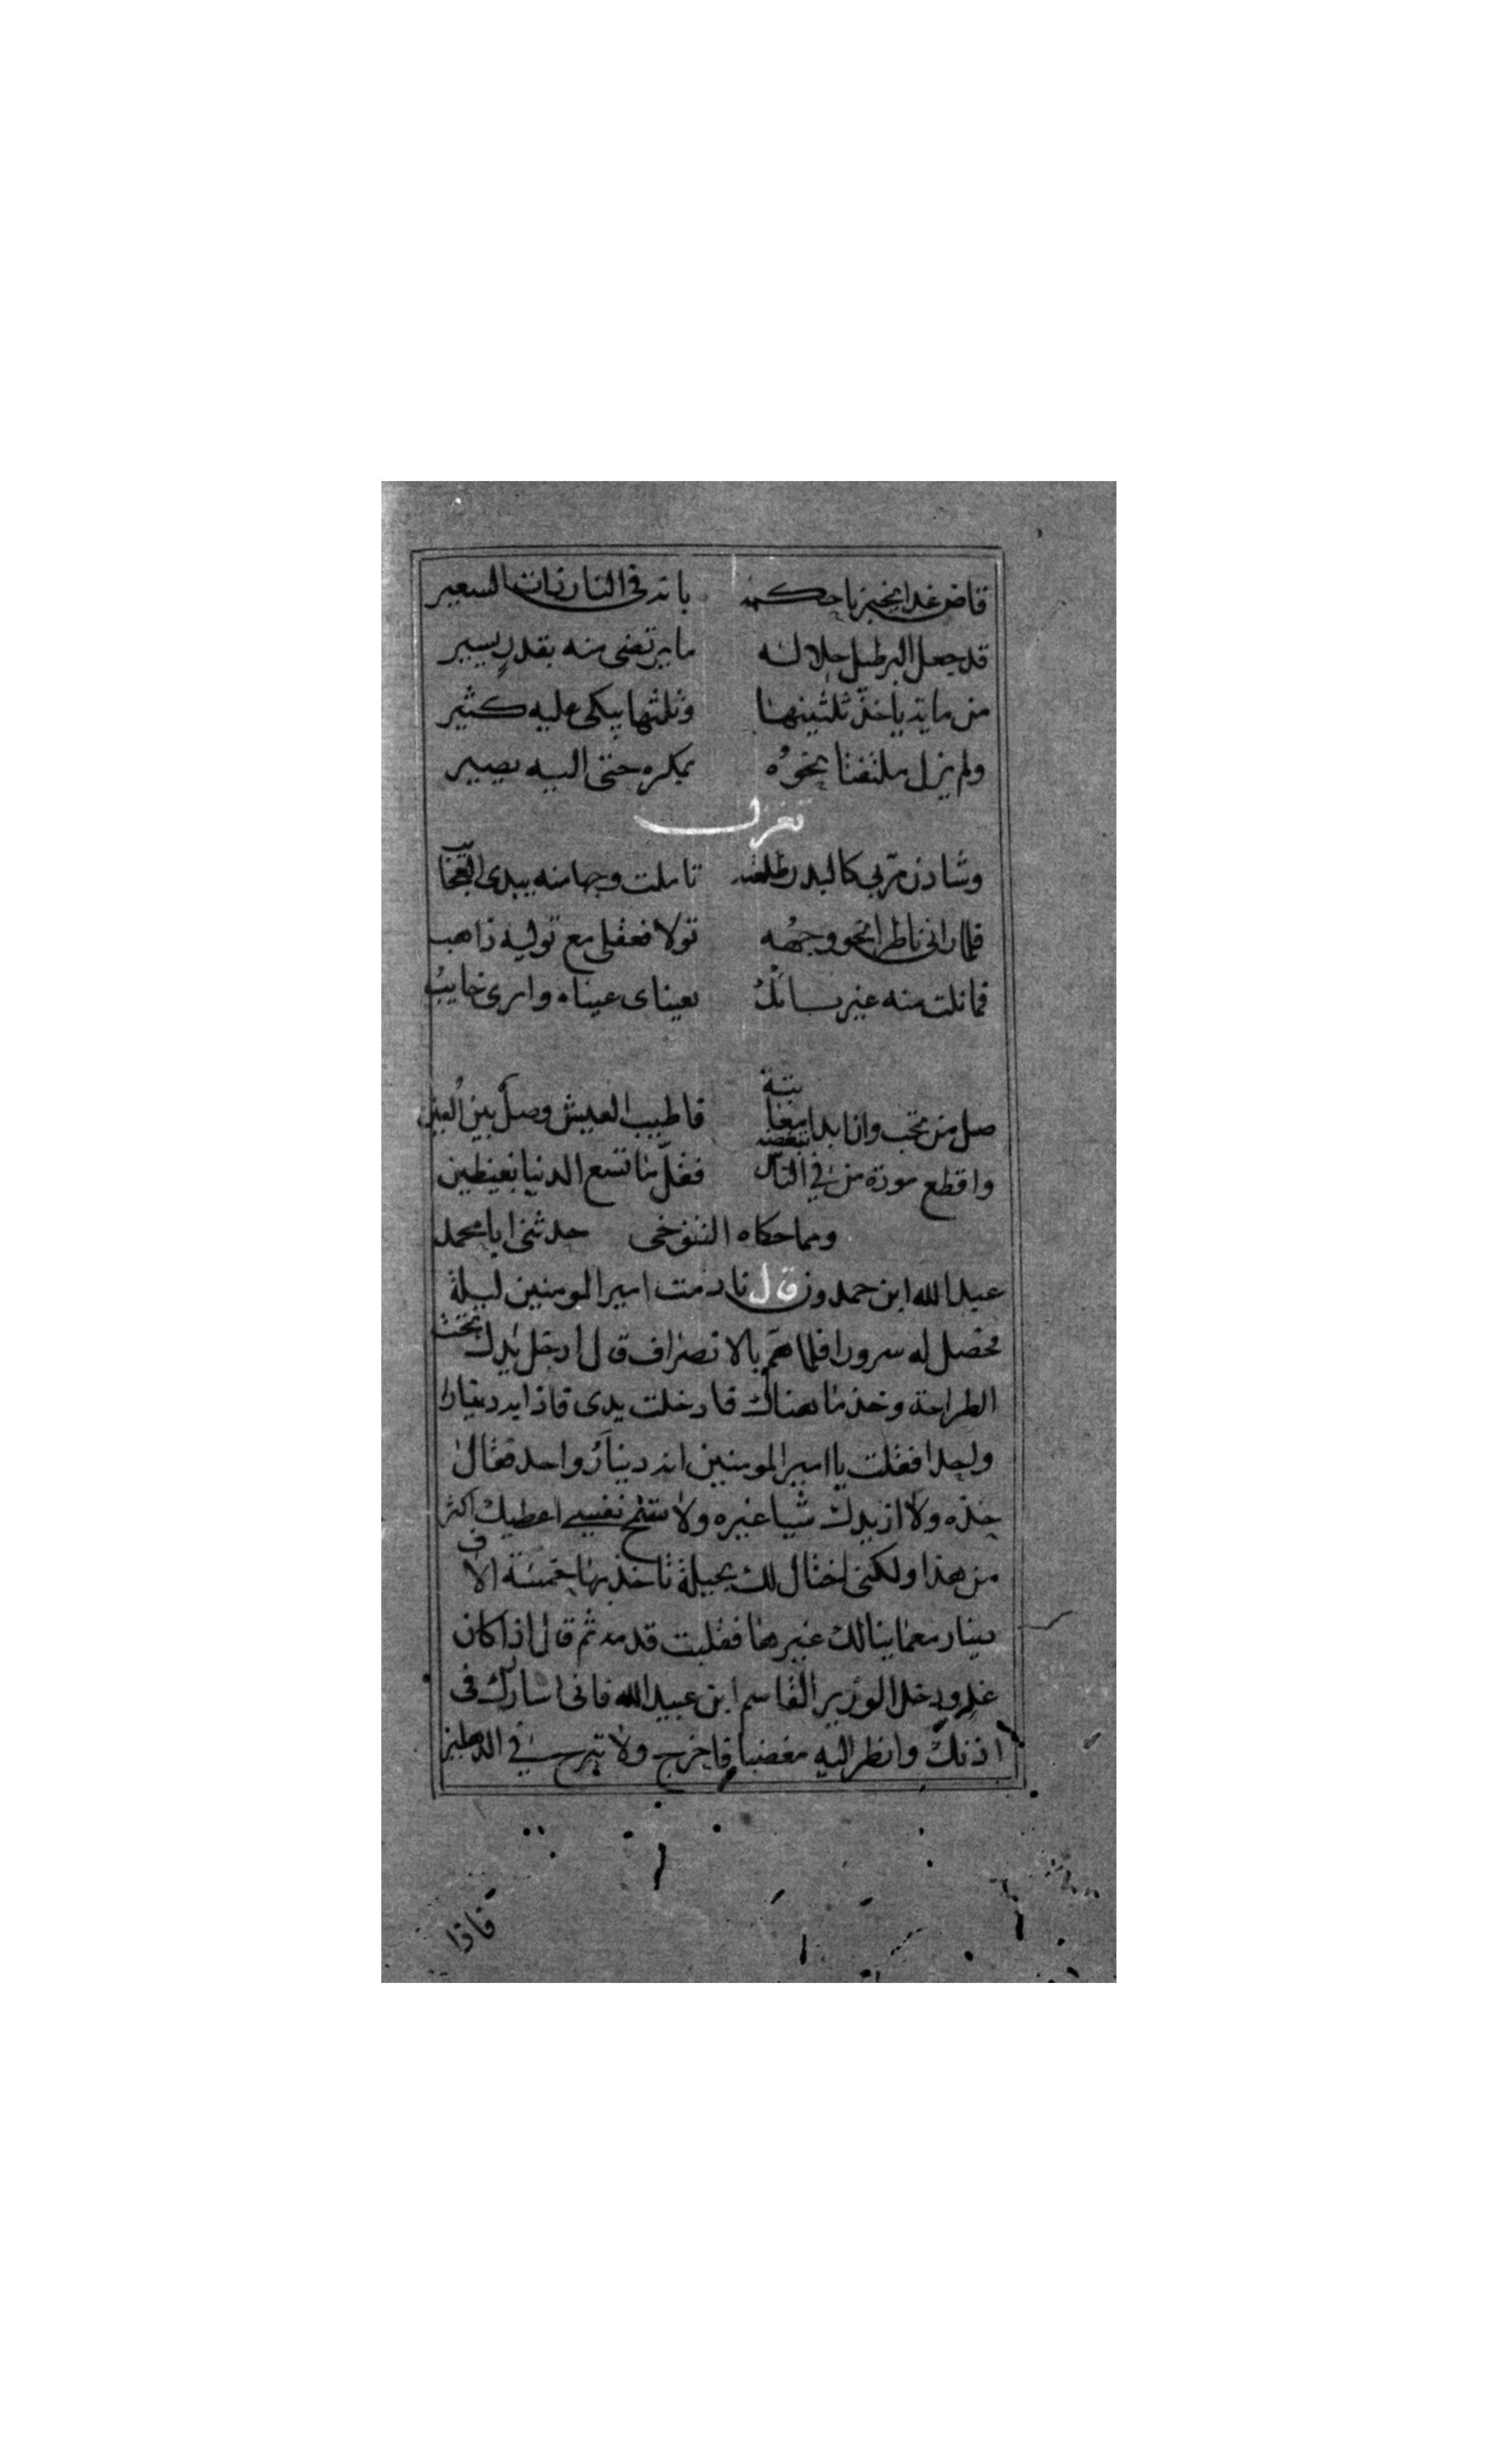 قاض غدا يخبرنا حكمه بانه فى النار ذات السعير
قد جعل البرطيل حلا له ما يرتضى منه بقدر يسير
من مايه ياخذ ثلثينها وثلثها يبكى عليه كثير
ولم يزل ملتفتا نحوه بمكره حتى اليه يصير
تغزل
وشادن مر بى كالبدر طلعته تاملت وجها منه يبدى
فلما رانى ناظرا نحو وجهه تولا فعقلى مع توليه ذاهب
فما نلت منه غير بعيناى عيناه واحرى خايب
صل من تحب وانا بدا فاطيب العيش وصل بين
واقطع مودة من فى فقل ما تسع الدنيا بغيظين
ومما حكاه التنوخى حدثنى ابا محمد
عبد الله ابن حمدون قال نادمت امير المومنين ليلة
فحصل له سرورا فلما هم بالانصراف قال ادخل يدك تحت
الطراحة وخذ ما هناك فادخلت يدى فاذا به دينارا
واحدا فقلت يا امير المومنين انه دينار واحد فقال
خذه ولا ازيدك شيا غيره ولا تسمح نفسى اعطيك اكثر
من هذا ولكنى احتال لك بحيلة تاخذ بها خمسة الاف
دينار معما ينالك غيرها فقلبت قدمه ثم قال اذا كان
غد ودخل الوزير القاسم ابن عبيد الله فانى اساررك فى
اذنك وانظر اليه مغضبا فاخرج ولا تبرح فى الدهليز
فاذا